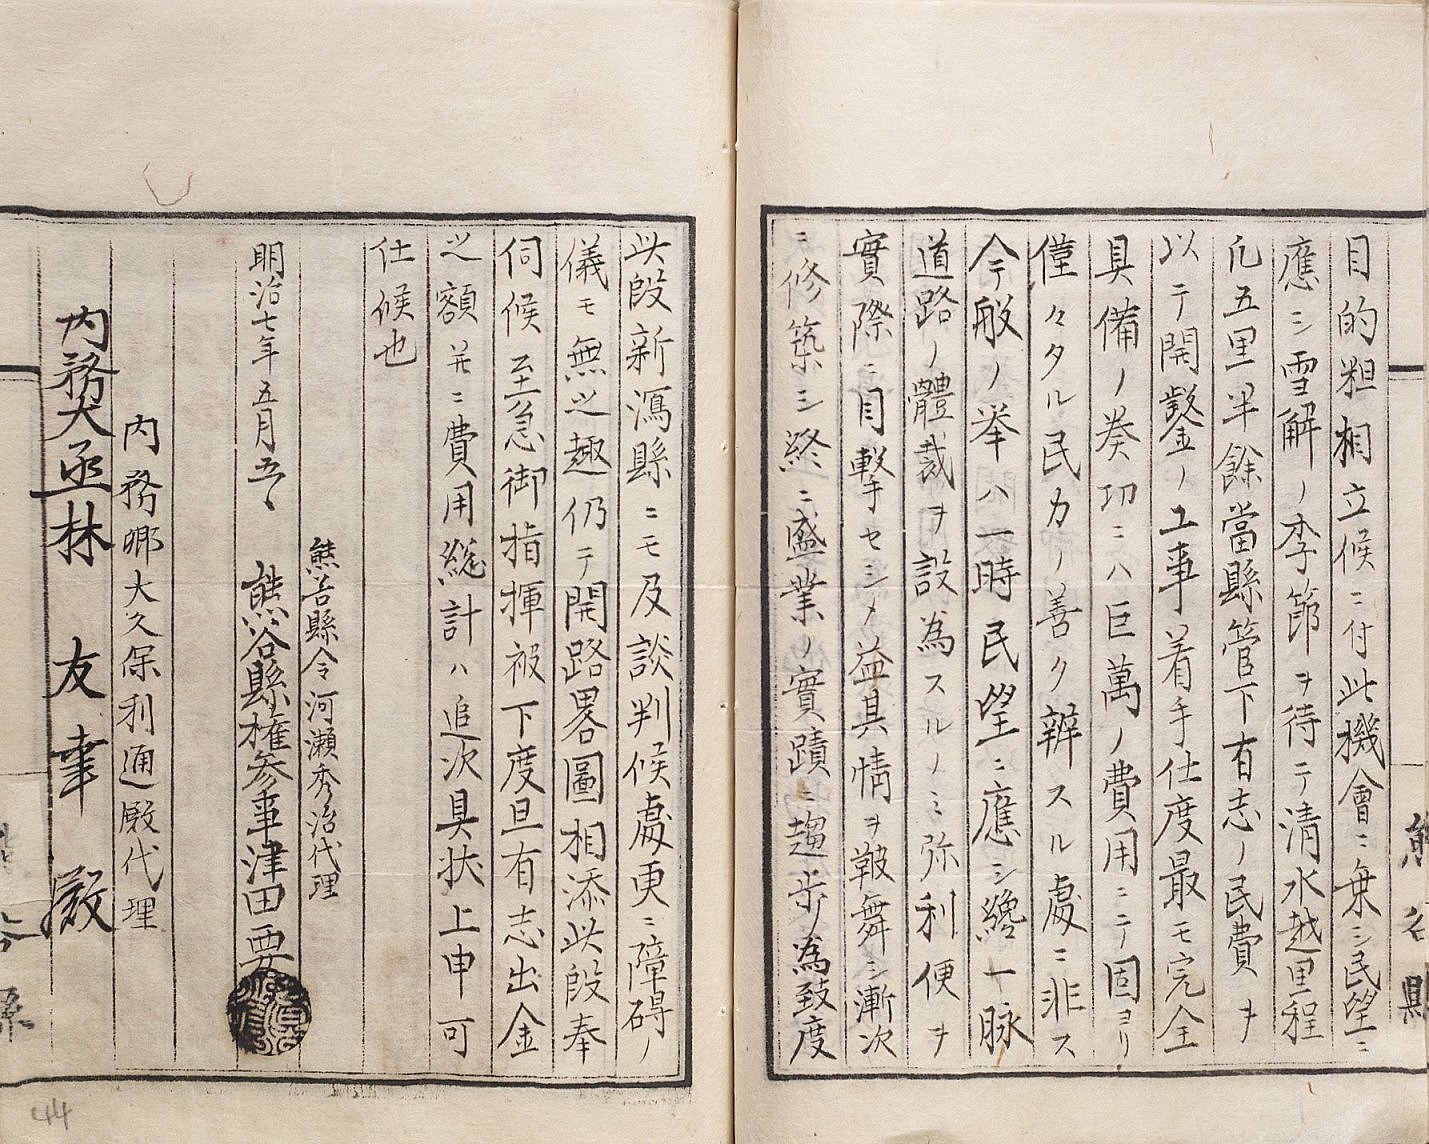 目的粗相立候ニ付此機會ニ乗シ民望ニ
應シ雪解ノ季節ヲ待テ清水越里程
凡五里半餘當縣管下有志ノ民費ヲ
以テ開鑿ノ工事着手仕度最モ完全
具備ノ奏功ニハ巨萬ノ費用ニテ固ヨリ
僅々タル民力ノ善ク辨スル處ニ非ス
今般ノ挙ハ一時民望ニ應シ纔一脉
道路ノ體裁ヲ設為スルノミ弥利便ヲ
實際ニ目撃セシメ益其情ヲ鞁舞シ漸次
ニ修築シ終ニ盛業ノ實蹟ニ趨歩ノ為致度
此段新潟縣ニモ及談判候處更ニ障碍ノ
儀モ無之趣仍テ開路畧圖相添此段奉
伺候至急御指揮被下度且有志出金
之額并ニ費用総計ハ追次具状上申可
仕候也
熊谷縣令河瀬秀治代理
明治七年五月 熊谷縣権参事津田要
内務卿大久保利通殿代理
内務大丞林友幸殿
44